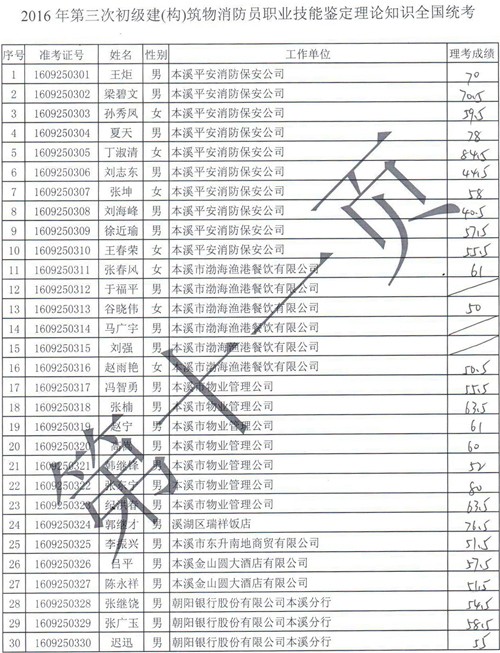 2016 年第三次初级建(构)筑物消防员职业技能鉴定理论知识全国统考
序号 准考证号 姓名 性别 工作单位 理考成绩
1 1609250301 王炬 男 本溪平安消防保安公司 70
2 1609250302 梁碧文 男 本溪平安消防保安公司 70.5
3 1609250303 孙秀凤 女 本溪平安消防保安公司 59.5
4 1609250304 夏天 男 本溪平安消防保安公司 78
5 1609250305 丁淑清 女 本溪平安消防保安公司 84.5
6 1609250306 刘志东 男 本溪平安消防保安公司 44.5
7 1609250307 张坤 女 本溪平安消防保安公司 58
8 1609250308 刘海峰 男 本溪平安消防保安公司 40.5
9 1609250309 徐近瑜 男 本溪平安消防保安公司 57.5
10 1609250310 王春荣 女 本溪平安消防保安公司 55.5
11 1609250311 张春风 女 本溪市渤海渔港餐饮有限公司 61
12 1609250312 于福平 男 本溪市渤海渔港餐饮有限公司
13 1609250313 谷晓伟 女 本溪市渤海渔港餐饮有限公司 50
14 1609250314 马广宇 男 本溪市渤海渔港餐饮有限公司
15 1609250315 刘强 男 本溪市渤海渔港餐饮有限公司
16 1609250316 赵雨艳 女 本溪市渤海渔港餐饮有限公司 50.5
17 1609250317 冯智勇 男 本溪市物业管理公司 55.5
18 1609250318 张楠 男 本溪市物业管理公司 63.5
19 1609250319 赵宁 男 本溪市物业管理公司 61
20 1609250320 男 本溪市物业管理公司 60
21 1609250321 韩继锋 男 本溪市物业管理公司 52
22 1609250322 张东宁 男 本溪市物业管理公司 80
23 1609250323 男 本溪市物业管理公司 63.5
24 1609250324 郭继才 男 溪湖区瑞祥饭店 76.5
25 1609250325 李振兴 男 本溪市东升南地商贸有限公司 51.5
26 1609250326 吕平 男 本溪金山圆大酒店有限公司 57.5
27 1609250327 陈永祥 男 本溪金山圆大酒店有限公司 51.5
28 1609250328 张继饶 男 朝阳银行股份有限公司本溪分行 54.5
29 1609250329 张广玉 男 朝阳银行股份有限公司本溪分行 58.5
30 1609250330 迟迅 男 朝阳银行股份有限公司本溪分行 55
第十一页